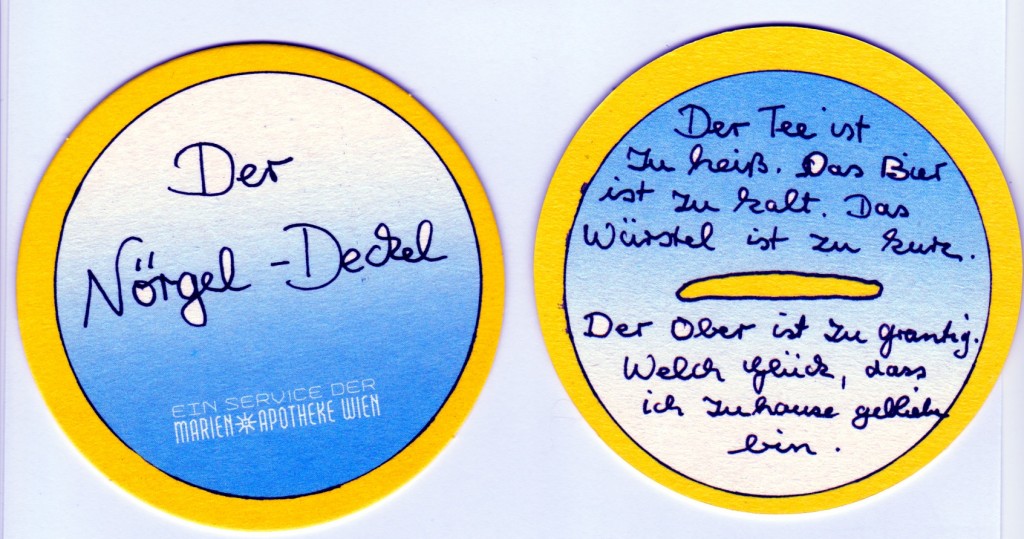 Der
Nörgel-Deckel
EIN SERVICE DER
MARIEN APOTHEKE WIEN
Der Tee ist
zu heiß. Das Bier
ist zu kalt. Das
Würstel ist zu kurz.
Der Ober ist zu grantig.
Welch Glück, dass
ich zuhause geblieben
bin.